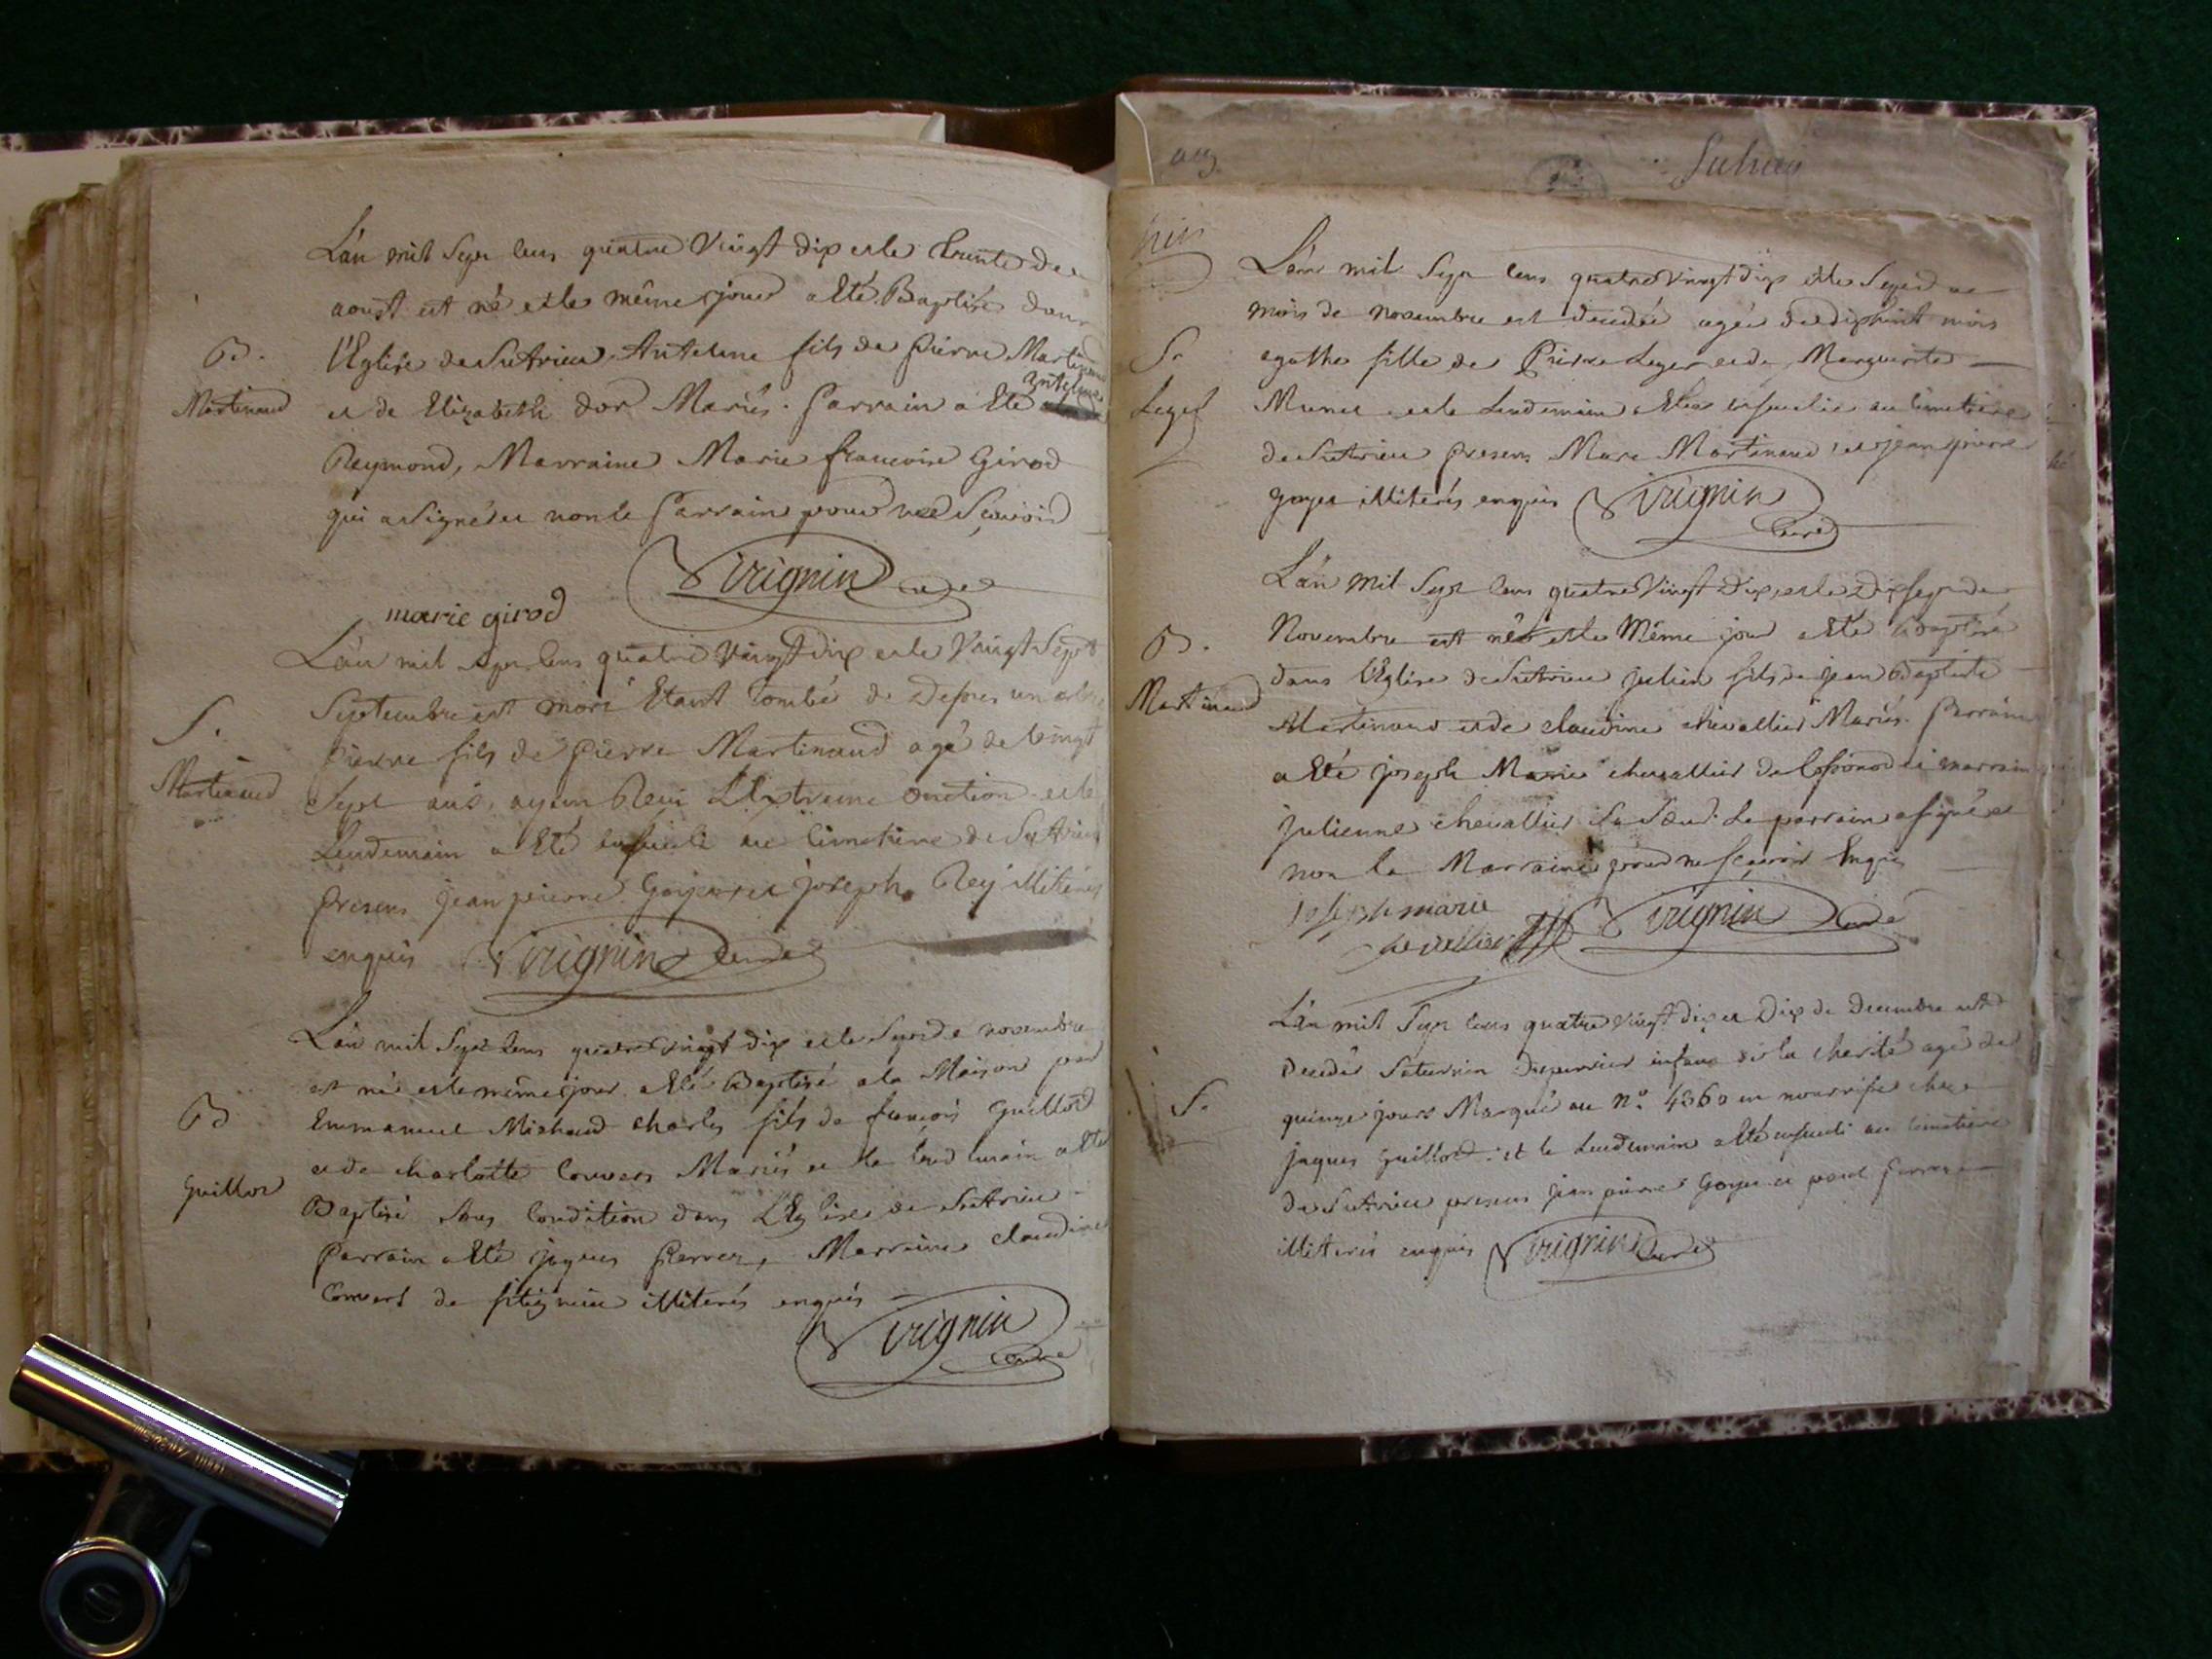 L'an mil Sept Cens quatre Vingt dix et le trente de
aoust est né et le même jour a Eté Baptisé dans
B.
l'Eglise de Sutrieu Antelme fils de Pierre Martinaud
Martinaud
et de Elizabeth dor Mariés. Parrain a Eté Antelme
Reymond, Marraine Marie francoise Girod
qui a Signé et non le Parrain pour ne Sçavoir
Virignin Curé
marie girod
L'an mil Sept Cens quatre Vingt dix et le Vingt Sept
Septembre est mort Etant tombé de Dessus un
S.
Pierre fils de Pierre Martinaud agé de Vingt
Martinaud
Sept ans, ayant Reçu L'Extreme onction et le
Lendemain a Eté enseveli au Cimetiere de Sutrieu
Presens jean pierre Goyet et joseph Rey illiterés
enquis Virignin Curé
L'an mil Sept Cens quatre Vingt dix et le Sept de novembre
est né et le même jour a Eté Baptisé a la Maison par
B
Emmanuel Michaud Charles fils de francois Guillod
et de charlotte Convers Mariés et le lendemain a Eté
Guillod
Baptisé Sous Condition dans L'Eglise de Sutrieu
Parrain a Eté jaques Perret, Marraine claudine
Convert de illiterés enquis
Virignin
Curé
L'an mil Sept Cens quatre Vingt dix et le Sept du
mois de novembre est decedée agée de dixhuit mois
S.
agathe fille de Pierre Leger et de Marguerite
Leger
Munet et le Lendemain a Eté ensevelie au Cimetiere
de Sutrieu presens Marc Martinaud et jean pierre
goyet illiterés enquis Virignin
Curé
L'an Mil Sept Cens quatre Vingt Dix, et le Dix Sept de
Novembre est né et le Même jour a Eté Baptisé
B.
dans l'Eglise de Sutrieu julien fils de jean Baptiste
Martinaud
Martinaud et de claudine chevallier Mariés. Parrain
a Eté joseph Marie chevallier de et marraine
julienne chevallier Sa Sœur. Le parrain a signé et
non la Marraine pour ne sçavoir Enquis
joseph marie
chevallier Virignin Curé
L'an mil Sept Cens quatre Vingt dix et Dix de Decembre est
decedé Saturnin enfant de la charité agé de
S.
quinze jours Marqué au N.° 4360 en nourrisse chez
jaques Guillod: et le Lendemain a Eté enseveli au Cimetiere
de Sutrieu presens jean pierre Goyet et paul
illiterés enquis Virignin Curé